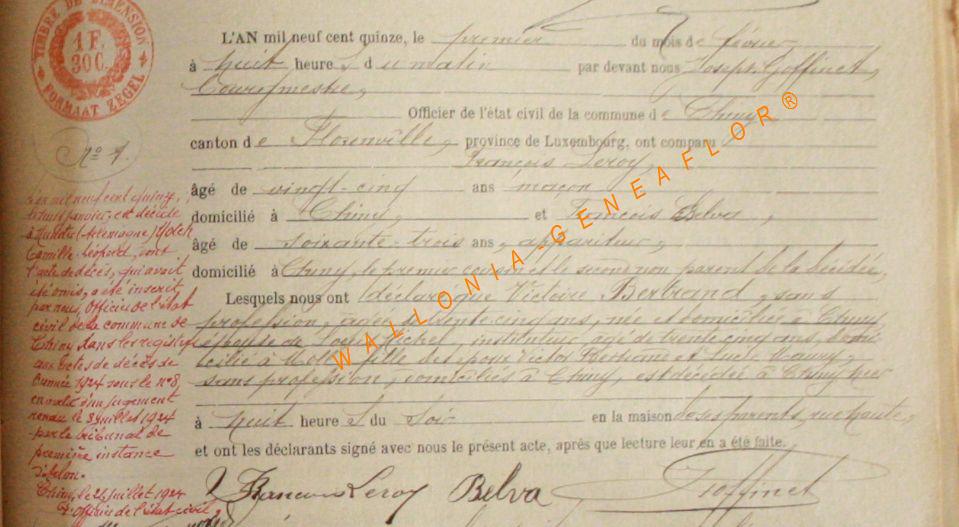 TIMBRE DE DIMENSION
1 F.
30 C.
FORMAAT ZEGEL
L'AN mil neuf cent quinze, le premier du mois de février
à huit heures du matin par devant nous Joseph Goffinet,
Bourgmestre,
Officier de l'état civil de la commune de Chiny
canton de Florenville, province de Luxembourg, ont comparu
François Leroy,
âgé de vingt-cinq ans maçon
domicilié à Chiny, et François Belva,
âgé de soixante-trois ans, appariteur,
domicilié à Chiny, le premier cousin et le second non parent de la décédée,
Lesquels nous ont déclaré que Victoire Bertrand, sans
profession, âgée de trente cinq ans, née et domiciliée à Chiny,
épouse de Louis, instituteur, âgé de trente cinq ans, domi
cilié à fille des époux Victor Bertrand et
sans profession, domiciliés à Chiny, est décédée à Chiny hier
à huit heures du soir en la maison de ses parents, rue haute,
et ont les déclarants signé avec nous le présent acte, après que lecture leur en a été faite.
François Leroy Belva Goffinet
No 4.
L'an mil neuf cent quinze,
le huit janvier, est décédé
à Munster (Allemagne)
Camille Léopold, dont
l'acte de décès, qui avait
été omis, a été inscrit
par nous, Officier de l'état
civil de la commune de
Chiny dans les registres
aux actes de décès de
l'année 1924 sous le no 8,
en suite d'un jugement
rendu le 3 juillet 1924
par le tribunal de
première instance
d'Arlon.
Chiny, le 24 juillet 1924
L'officier de l'état civil,
WALLONIA-GENEAFLOR®